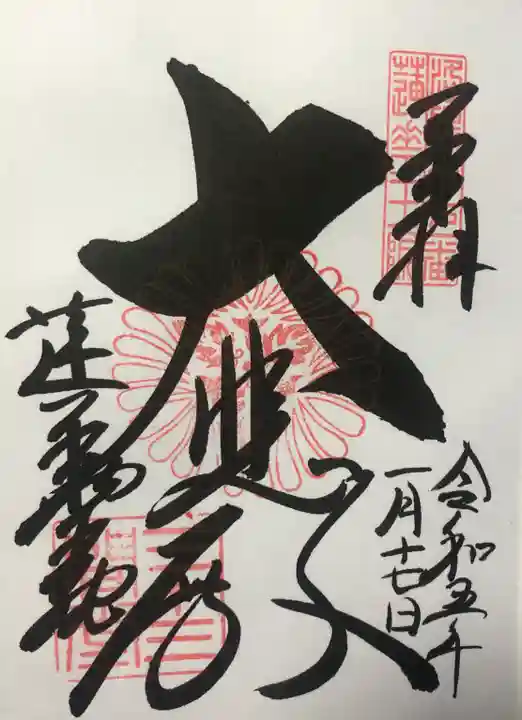 奉拝
令和五年
一月十七日
大悲殿
蓮華王院